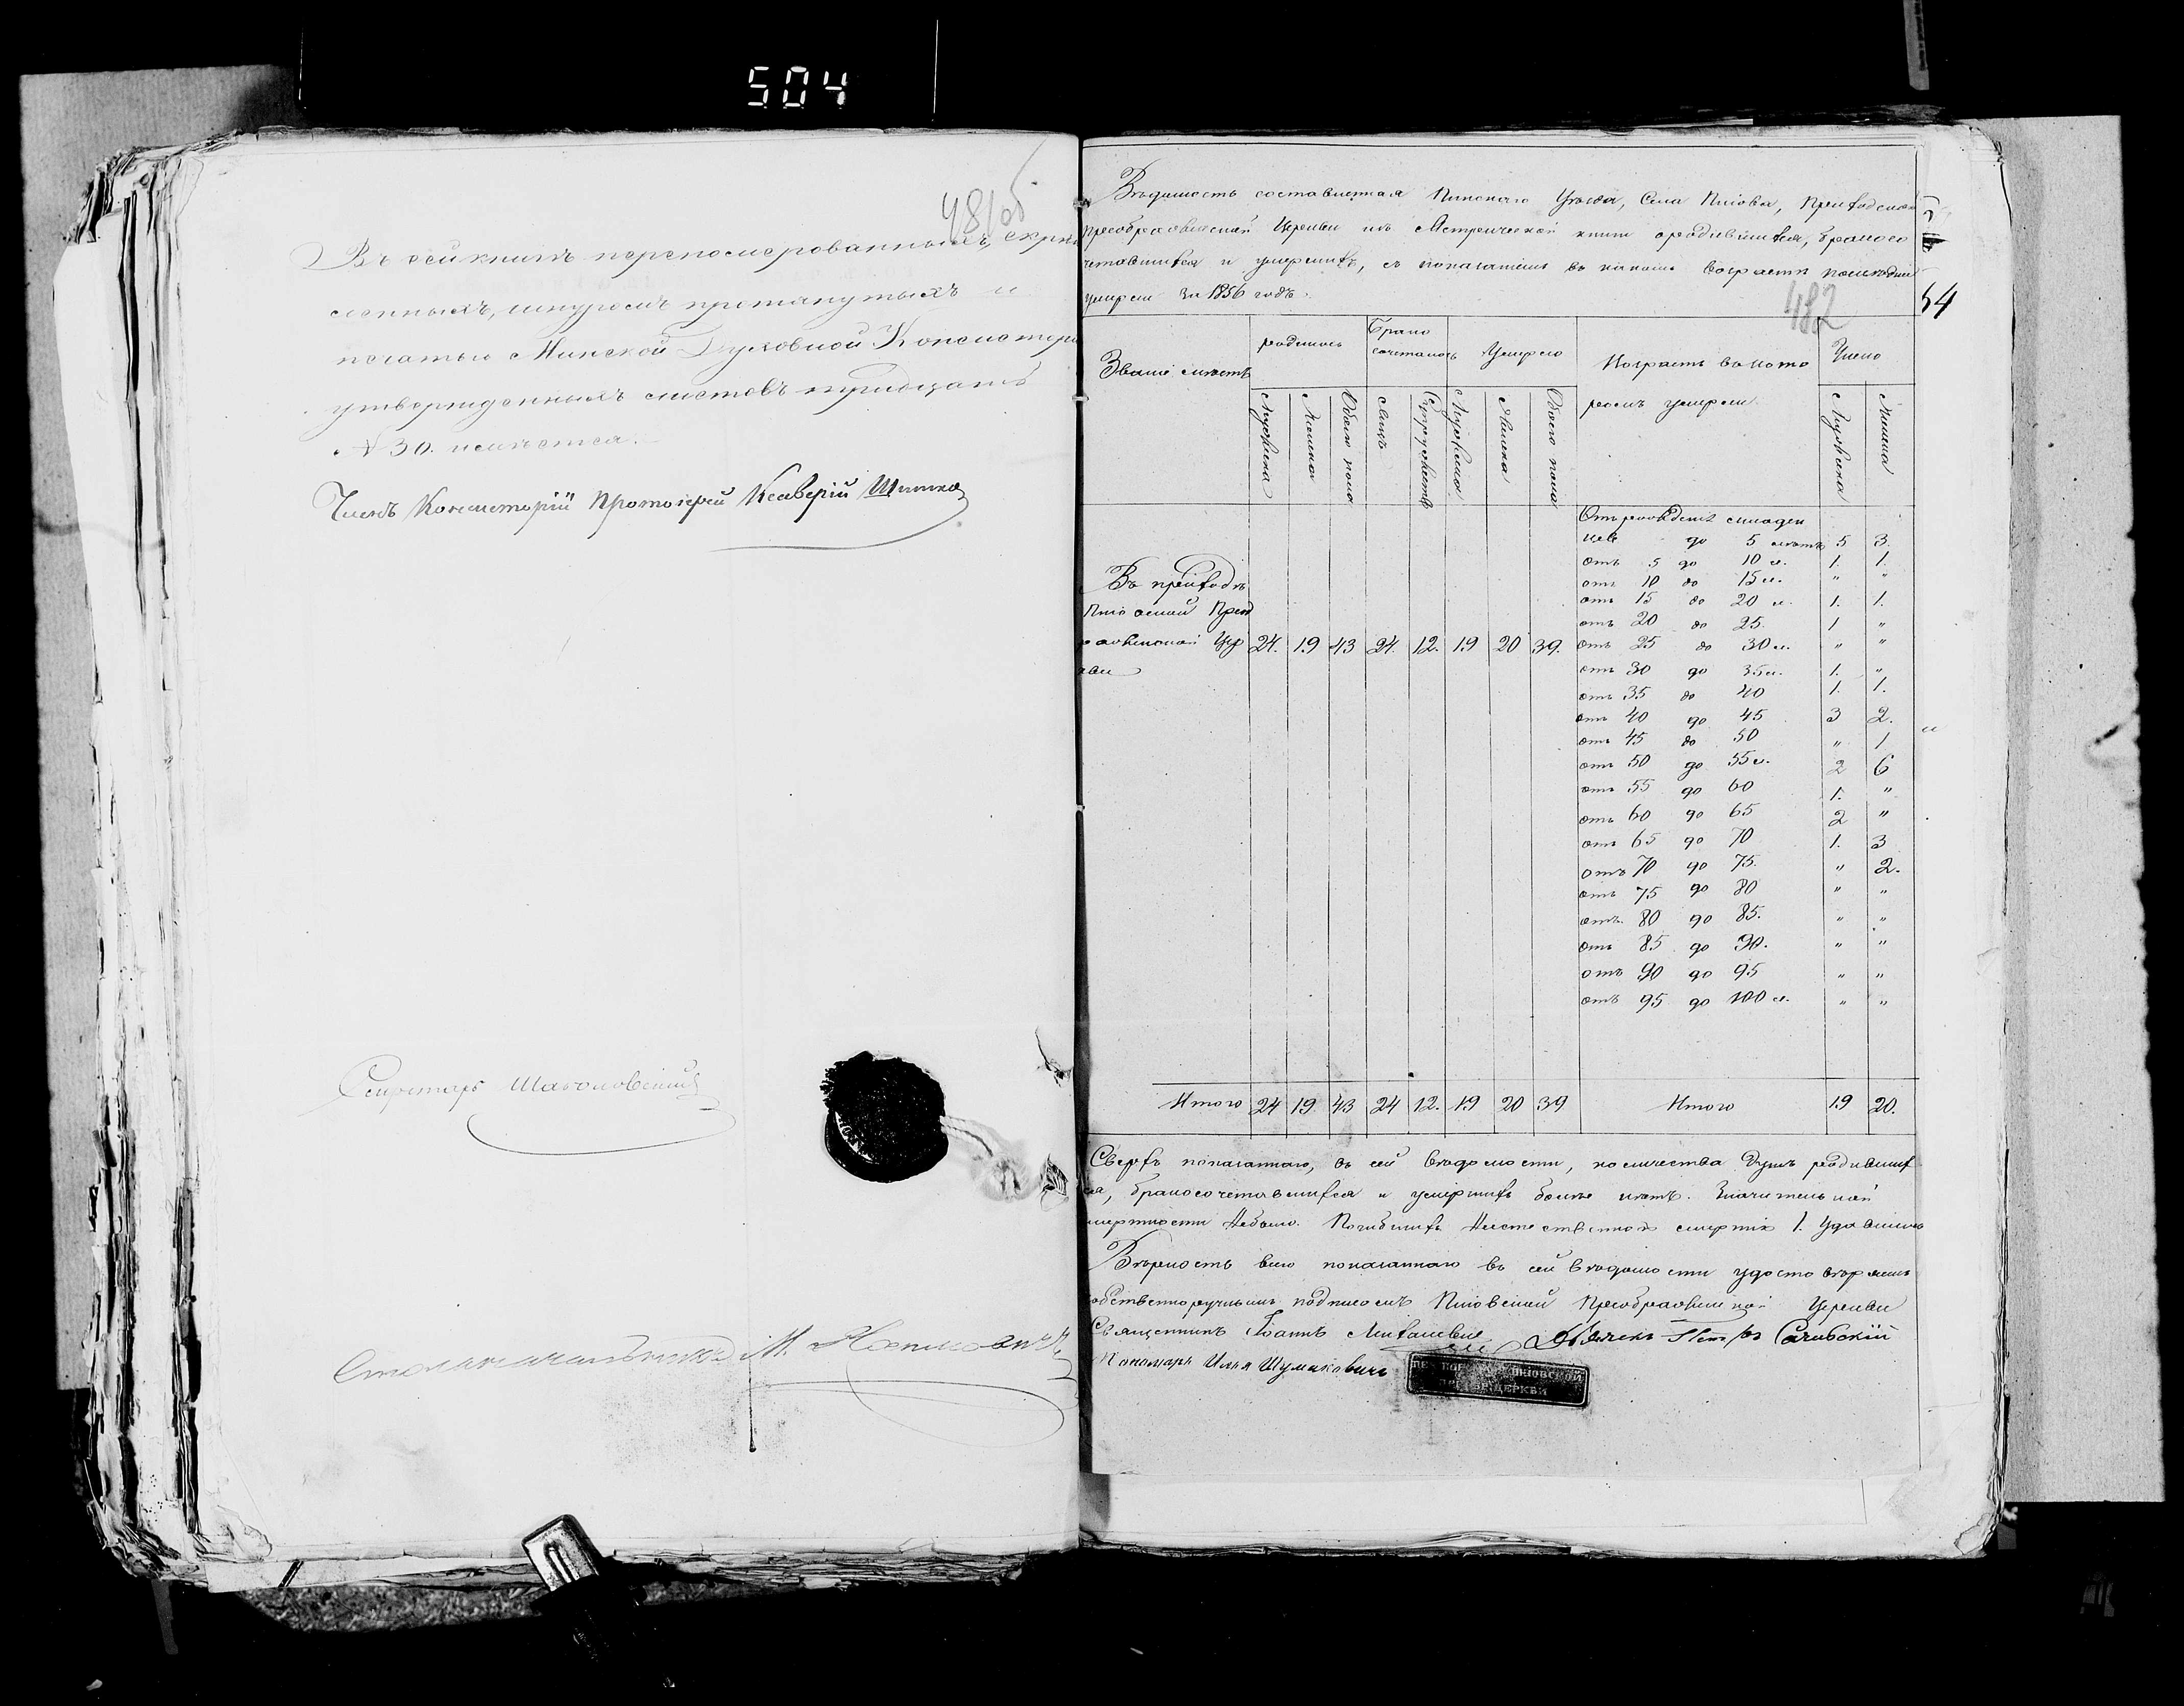 504
481 об
Въ сей книгѣ перенумерованныхъ, скрѣп
ленныхъ, шнуромъ протянутыхъ и
печатью Минской Духовной Консисторіи
утвержденныхъ листовъ тридцать
№ 30. имѣется.
Членъ Консисторіи Протоіерей Ксаверій
Секретарь
Столоначальникъ М.
Вѣдомость составленная Пинскаго Уѣзда, Села, Приходской
Преображенской Церкви изъ Метрической книги о родившихся, бракосо
четавшихся и умершихъ, съ показаніемъ въ какомъ возрастѣ послѣдніе
умерли за 1856 годъ.
482
54
Званіе мѣстъ
родилось
Брако
сочеталось
Умерло
Возрастъ въ кото
ромъ умерли
Число
Мужеска
Женска
Обоего пола
Лицъ
Супружествъ
Мужеска
Женска
Обоего пола
Мужеска
Женска
Отъ рожденія младен
цевъ до 5 лѣтъ 5 3.
отъ 5 до 10 л. 1. 1.
отъ 10 до 15 л. " "
отъ 15 до 20 л. 1. 1.
отъ 20 до 25. 1 "
отъ 25 до 30 л. " "
отъ 30 до 35 л. 1. "
отъ 35 до 40 1. 1.
отъ 40 до 45 3 2.
отъ 45 до 50 " 1
отъ 50 до 55 л. 2 6
отъ 55 до 60 1. "
отъ 60 до 65 2 "
отъ 65 до 70 1. 3
отъ 70 до 75. " 2.
отъ 75 до 80 " "
отъ 80 до 85. " "
отъ 85 до 90. " "
отъ 90 до 95 " "
отъ 95 до 100 л. " "
Въ приходѣ
Преоб
раженской Цер
кви
24. 19 43 24. 12. 19 20 39.
Итого 24 19. 43 24 12. 19 20 39 Итого 19 20.
Сверхъ показаннаго, въ сей вѣдомости, количества душъ родивших
ся, бракосочетавшихся и умершихъ болѣе нѣтъ. Значительной
смертности небыло. Погибшихъ неестественною смертію 1.
Вѣрность всего показаннаго въ сей вѣдомости удостовѣряемъ
собственноручнымъ подписомъ Преображенской Церкви
Священникъ Іоаннъ Дьячекъ Петръ
Пономарь Илья Шумаковичъ
ЦЕРКВИ